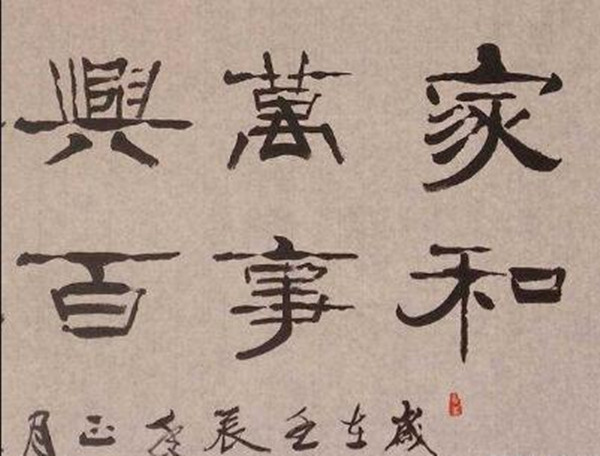 家和
萬事
興百
歲在壬辰正月